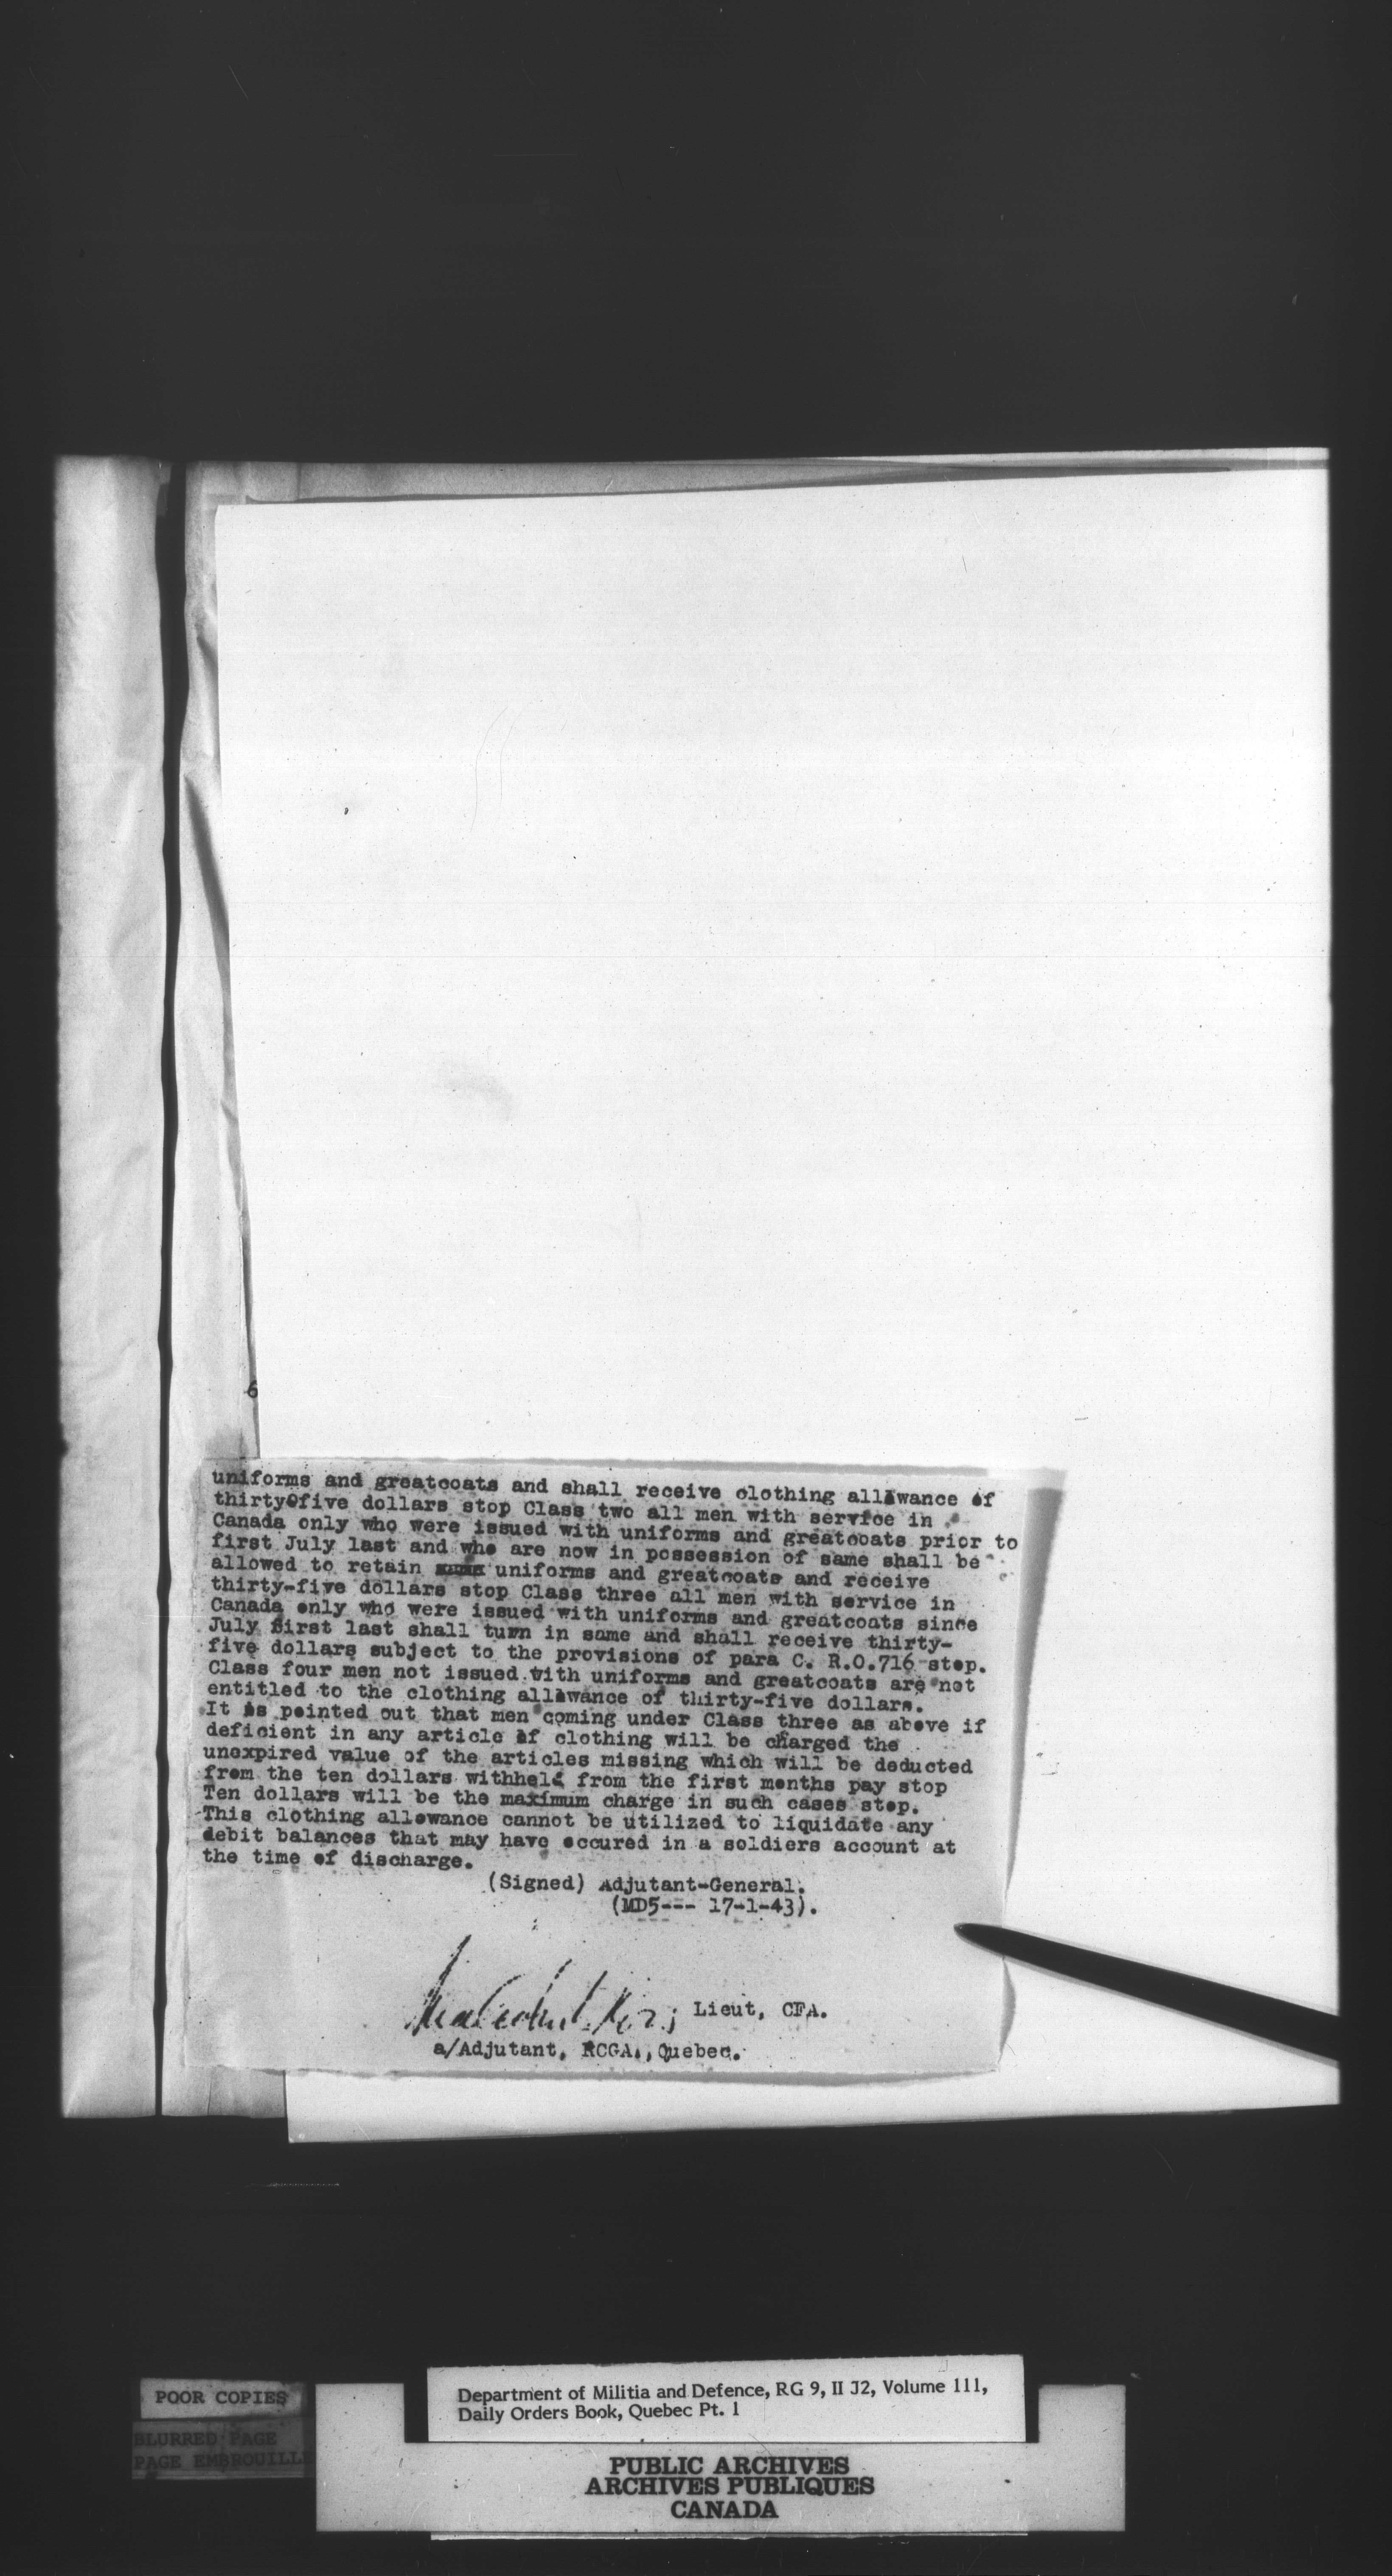 6
uniforms and greatcoats and shall receive clothing allawance of
thirtyOfive dollars stop Class two all men with service in
Canada only who were issued with uniforms and greatcoats prior to
first July last and who are now in possession of same shall be
allowed to retain uniforms and greatcoats and receive
thirty-five dollars stop Class three all men with service in
Canada only who were issued with uniforms and greatcoats since
July first last shall turn in same and shall receive thirty-
five dollars subject to the provisions of para C. R.O.716 stop.
Class four men not issued with uniforms and greatcoats are not
entitled to the clothing allawance of thirty-five dollars.
It is pointed out that men coming under Class three as above if
deficient in any article of clothing will be charged the
unexpired value of the articles missing which will be deducted
from the ten dollars withheld from the first months pay stop
Ten dollars will be the maximum charge in such cases stop.
This clothing allowance cannot be utilized to liquidate any
debit balances that may have occured in a soldiers account at
the time of discharge.
(Signed) Adjutant-General.
(MD5--- 17-1-43).
Lieut, CFA.
a/Adjutant, RCGA., Quebec.
POOR COPIES
BLURRED PAGE
PAGE EMBROUILLE
Department of Militia and Defence, RG 9, II J2, Volume 111,
Daily Orders Book, Quebec Pt. 1
PUBLIC ARCHIVES
ARCHIVES PUBLIQUES
CANADA